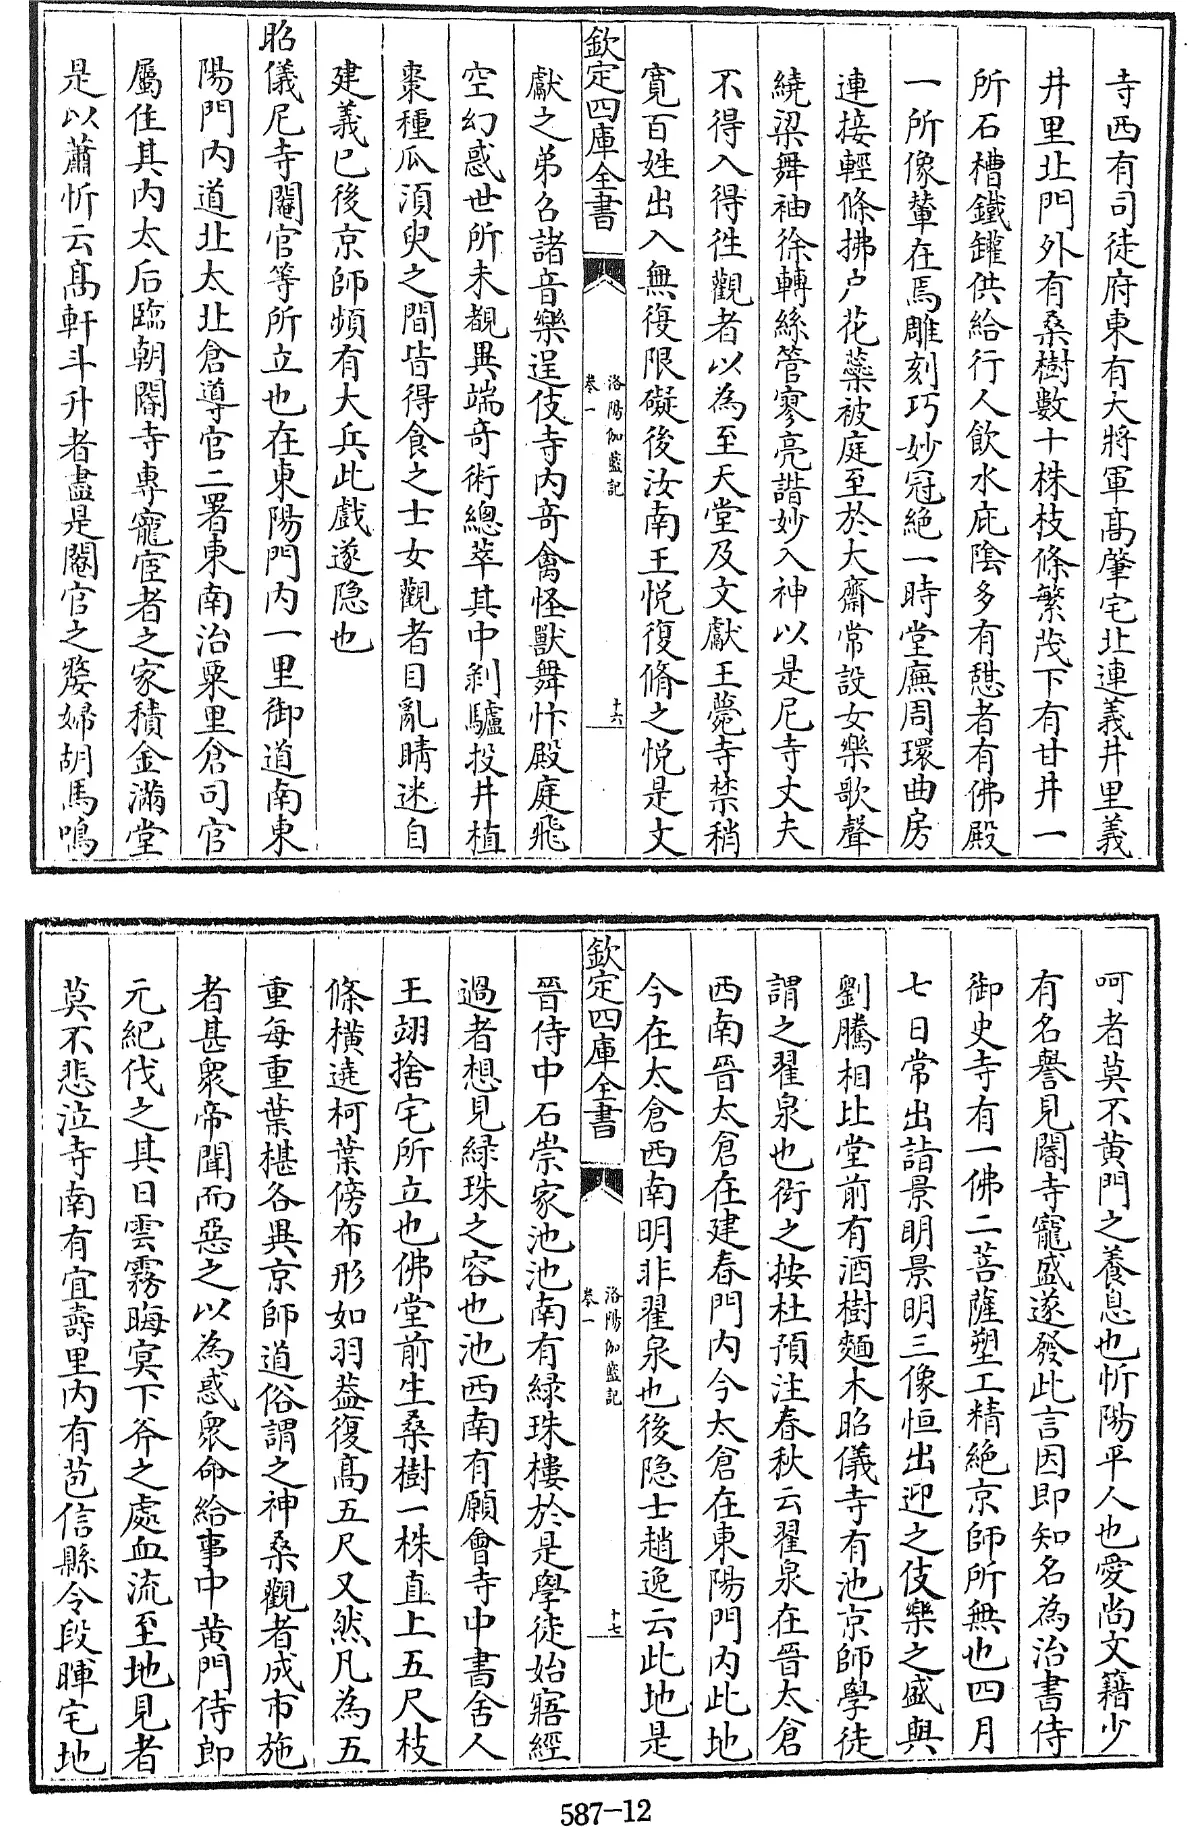 寺西有司徒府東有大將軍髙肇宅北連義井里義
井里北門外有桑樹數十株枝條繁茂下有甘井一
所石槽鐵罐供給行人飲水庇隂多有憇者有佛殿
一所像輦在焉雕刻巧妙冠絶一時堂廡周環曲房
連接輕條拂户花蘂被庭至於大齋常設女樂歌聲
繞梁舞袖徐轉絲管寥亮諧妙入神以是尼寺丈夫
不得入得徃觀者以為至天堂及文獻王薨寺禁稍
寛百姓出入無復限礙後汝南王悦復脩之悦是文
欽定四庫全書
洛陽伽藍記
卷一
十六
獻之弟召諸音樂逞伎寺内奇禽怪獸舞忭殿庭飛
空幻惑世所未覩異端奇術總萃其中剥驢投井植
棗種瓜湏臾之間皆得食之士女觀者目亂睛迷自
建義已後京師頻有大兵此戲遂隐也
昭儀尼寺閹官等所立也在東陽門内一里御道南東
陽門内道北太北倉導官二署東南治粟里倉司官
屬住其内太后臨朝閽寺專寵宦者之家積金滿堂
是以蕭忻云髙軒斗升者盡是閹官之嫠婦胡馬鳴
呵者莫不黄門之養息也忻陽平人也愛尚文籍少
有名譽見閽寺寵盛遂發此言因即知名為治書侍
御史寺有一佛二菩薩塑工精絶京師所無也四月
七日常出詣景明景明三像恒出迎之伎樂之盛與
劉騰相比堂前有酒樹麵木昭儀寺有池京師學徒
謂之翟泉也衒之按杜預注春秋云翟泉在晉太倉
西南晉太倉在建春門内今太倉在東陽門内此地
今在太倉西南明非翟泉也後隐士趙逸云此地是
欽定四庫全書
洛陽伽藍記
卷一
十七
晉侍中石崇家池池南有緑珠樓於是學徒始寤經
過者想見緑珠之容也池西南有願會寺中書舍人
王翊捨宅所立也佛堂前生桑樹一株直上五尺枝
條橫遶柯葉傍布形如羽葢復髙五尺又然凡為五
重每重葉椹各異京師道俗謂之神桑觀者成市施
者甚衆帝聞而惡之以為惑衆命給事中黄門侍郎
元紀伐之其日雲霧晦冥下斧之處血流至地見者
莫不悲泣寺南有宜壽里内有苞信縣令段暉宅地
587-12